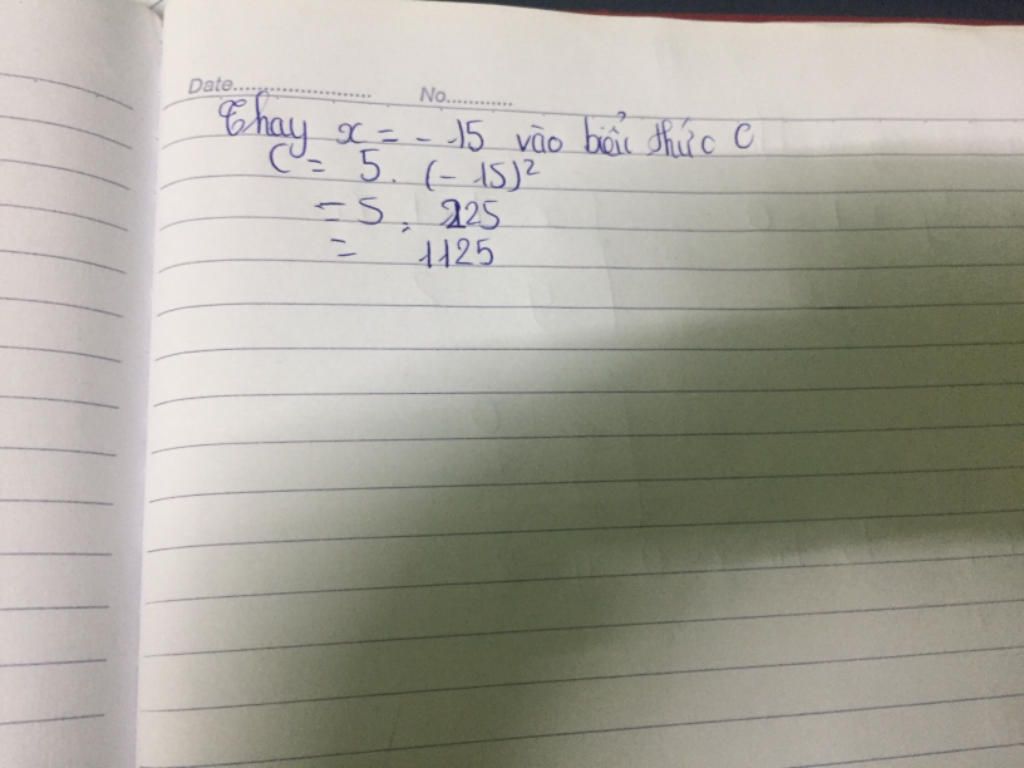 Date.................... No............
Thay x = - 15 vào biểu thức C
C = 5. (- 15)²
= 5 . 225
= 1125